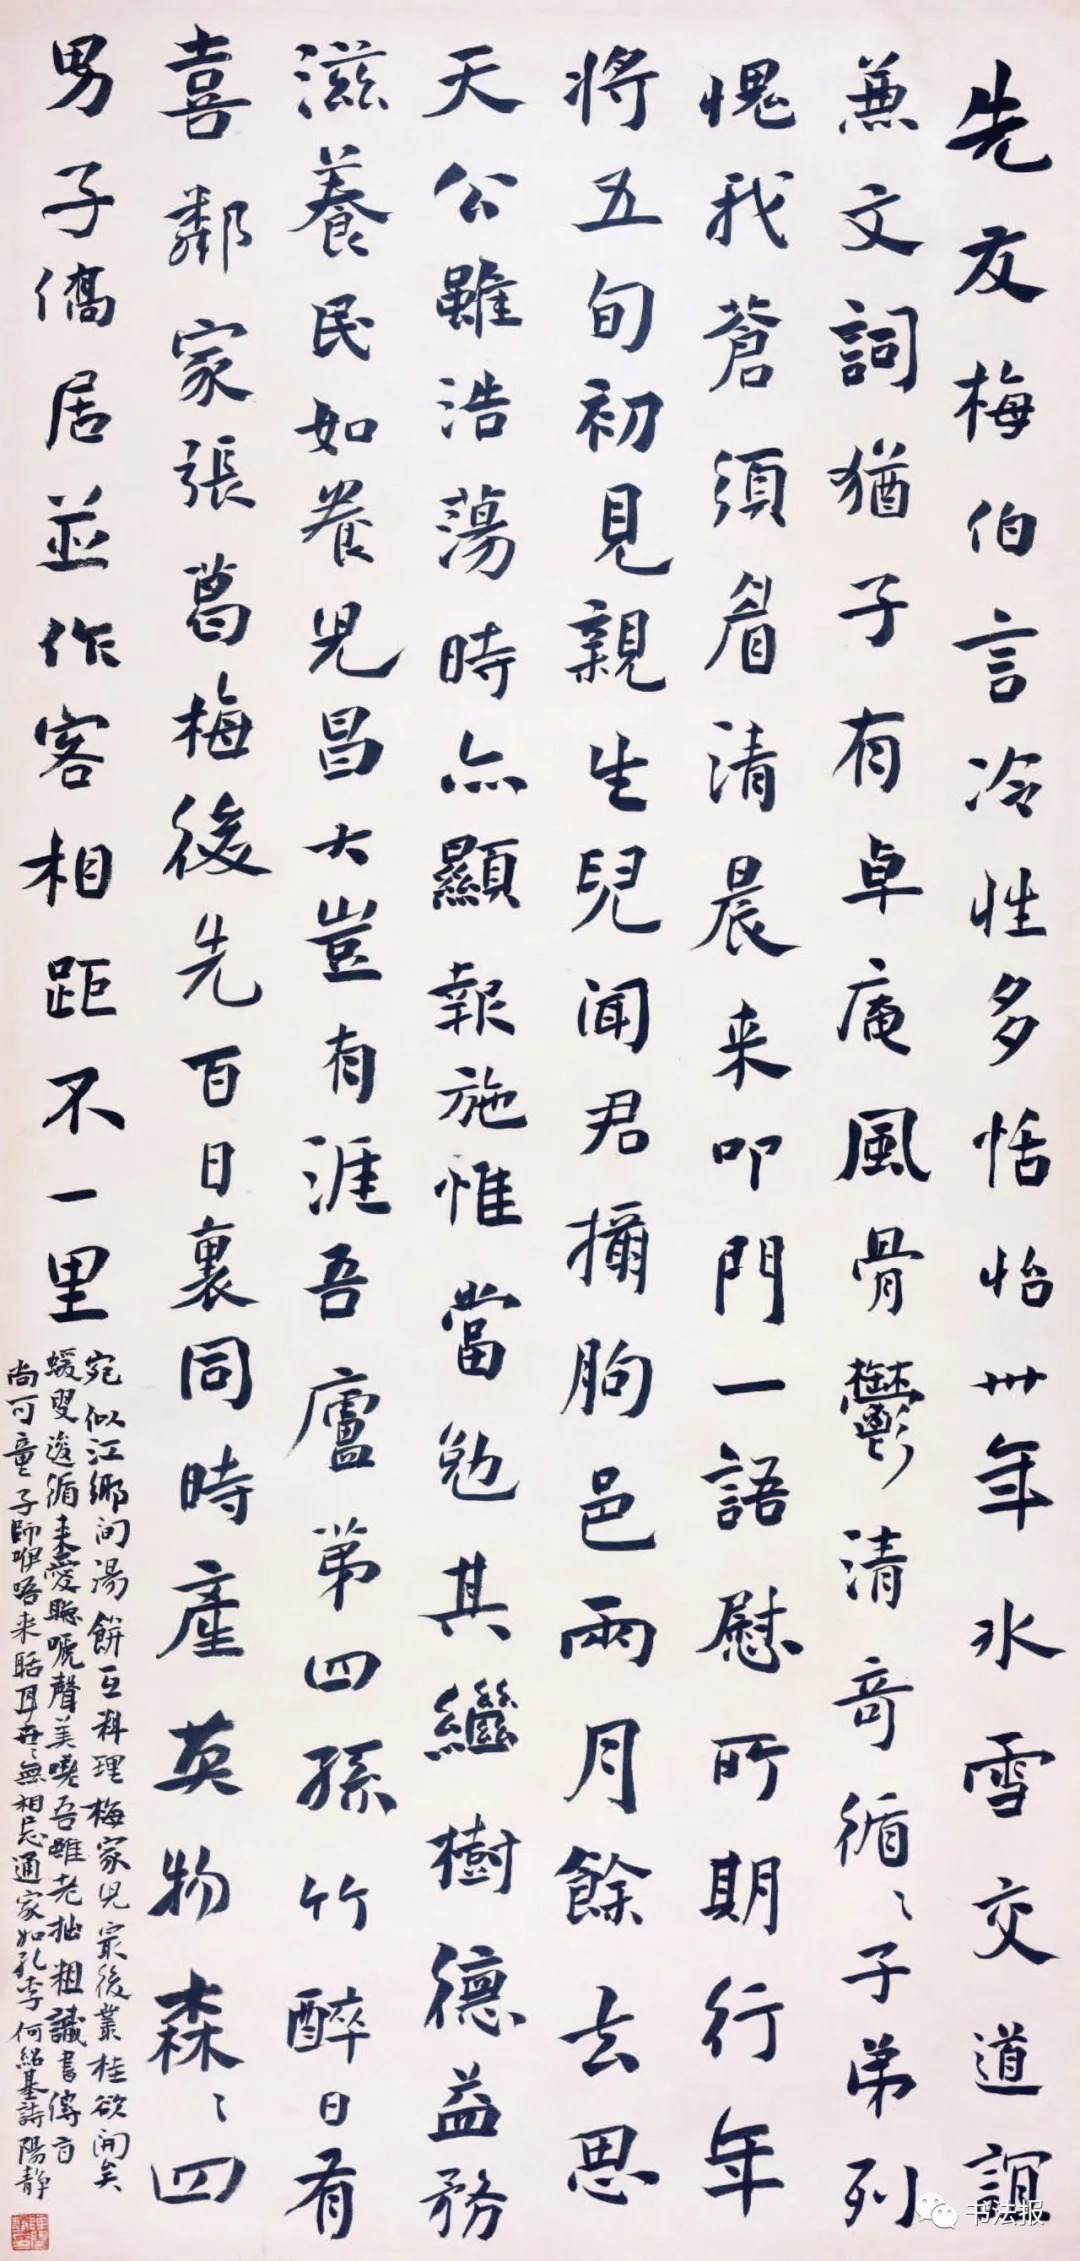 先友梅伯言冷性多恬怡卅年水雪交道誼
兼文詞猶子有卓庵風骨鬱清奇循〻子弟列
愧我蒼須眉清晨来叩門一語慰所期行年
將五旬初見親生兒聞君攝朐邑兩月餘去思
天公雖浩蕩時亦顯報施惟當勉其繼樹德益務
滋養民如養兒昌大豈有涯吾廬弟四孫竹醉日有
喜鄰家張葛梅後先百日裏同時產英物森〻四
男子僑居並作客相距不一里
宛似江鄉间湯餅互料理梅家児最後叢桂欲開矣
蝯叟逡循来愛聽嘅聲美嘵吾雖老拙粗識書傳旨
尚可童子師咿唔来聒耳世〻無相忘通家如孔李何紹基詩陽静
书法报